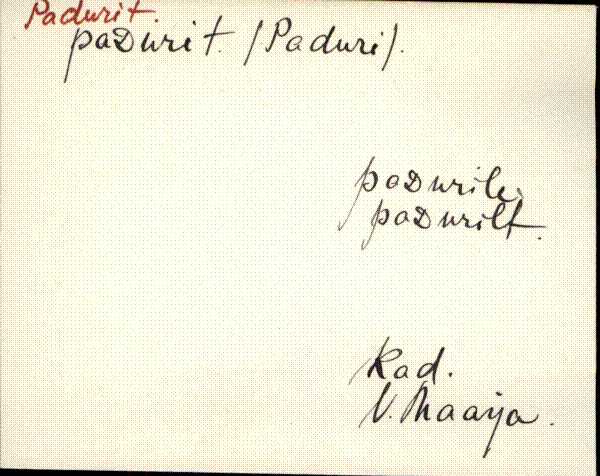 Padurit.
paDurit. (Paduri).
paDurile,
paDurilt.
Kad.
V. Maarja.